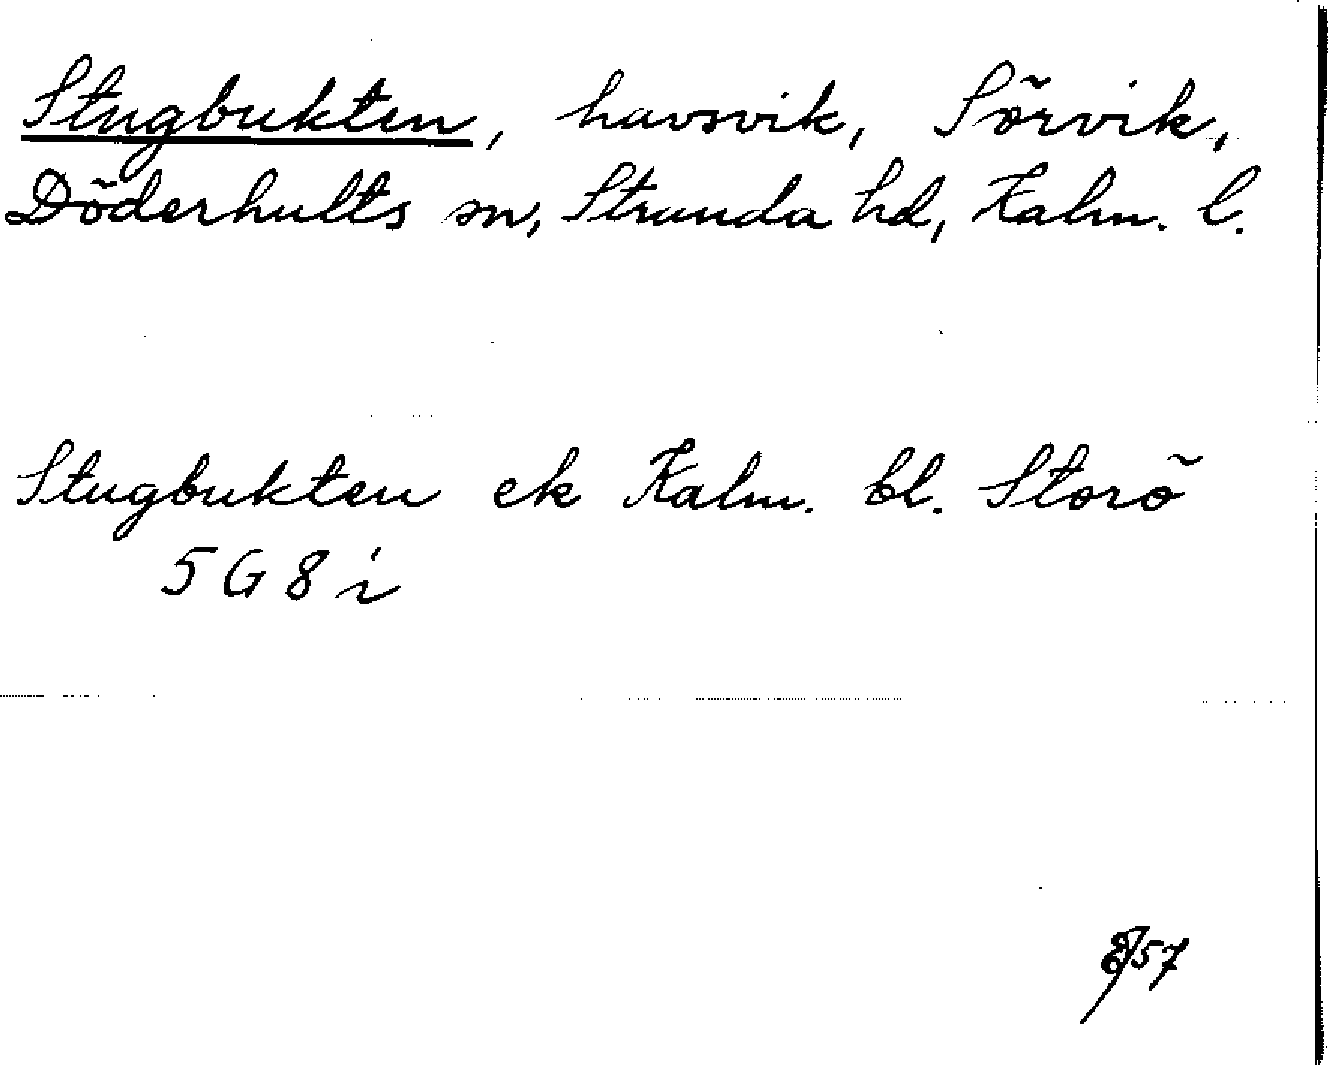 Stugbukten, havsvik, Sörvik,
Döderhults sn, Stranda hd, Kalm. l.
Stugbukten ek Kalm. bl. Storö
5 G 8 i
57